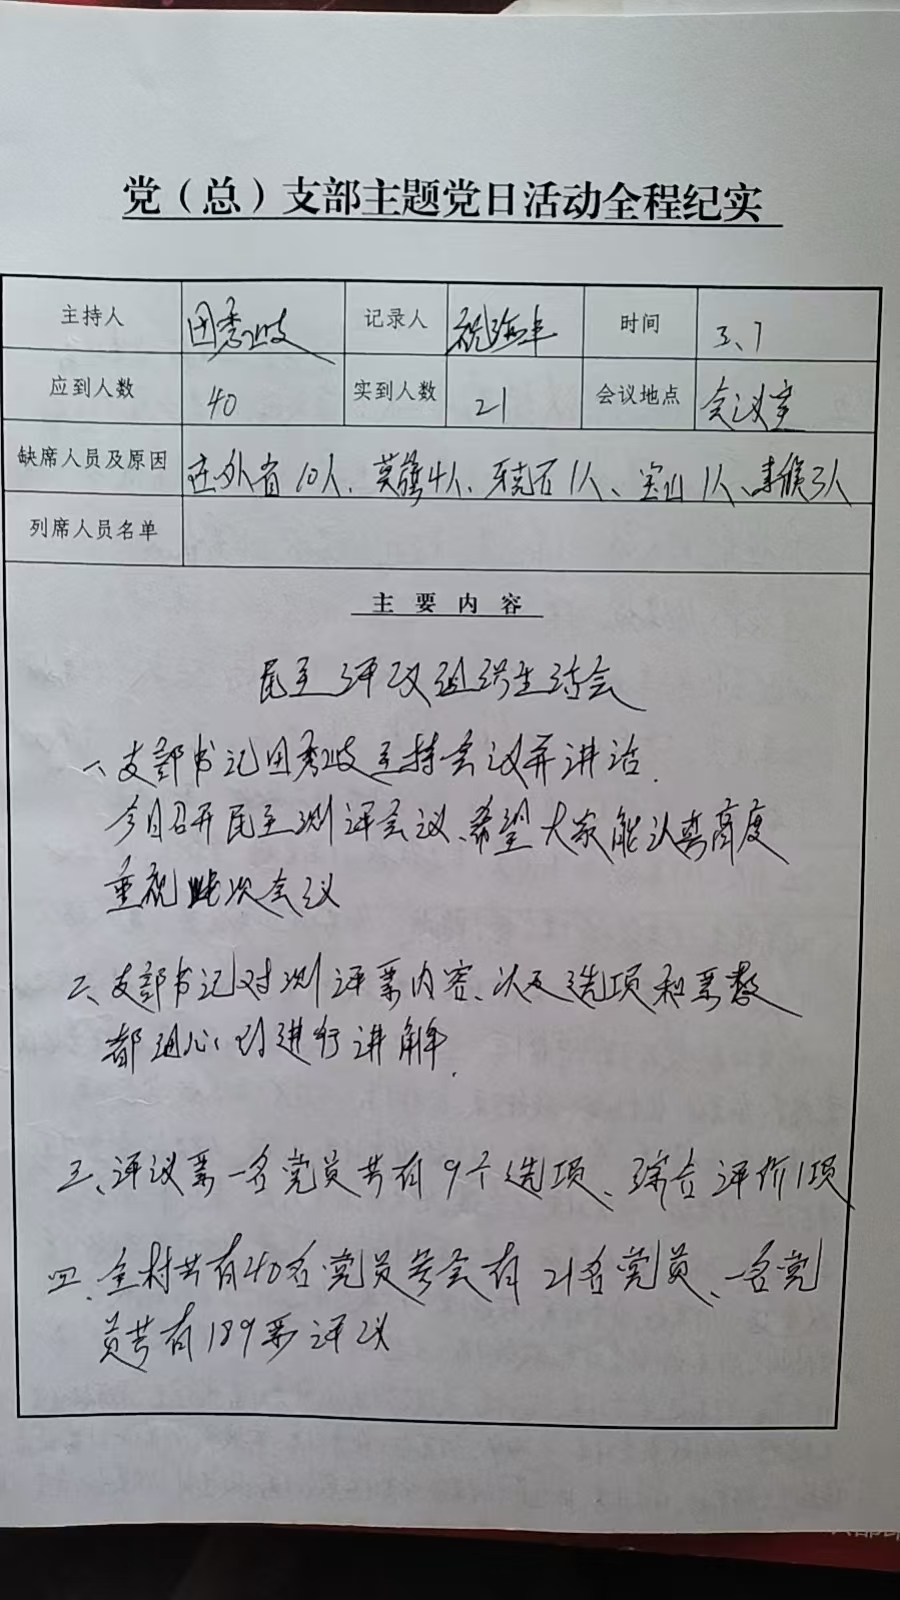 党（总）支部主题党日活动全程纪实
主持人 田秀岐 记录人 祝海丰 时间 3、7
应到人数 40 实到人数 21 会议地点 会议室
缺席人员及原因 在外省10人、莫旗4人、牙克石1人、宝山1人、事假3人
列席人员名单
主要内容
民主评议组织生活会
一、支部书记田秀岐主持会议并讲话.
今日召开民主测评会议、希望大家能认真高度
重视此次会议
二、支部书记对测评票内容、以及选项和票数
都细心的进行讲解.
三、评议票一名党员共有9个选项、综合评价1项
四、全村共有40名党员参会有21名党员、一名党
员共有189票评议